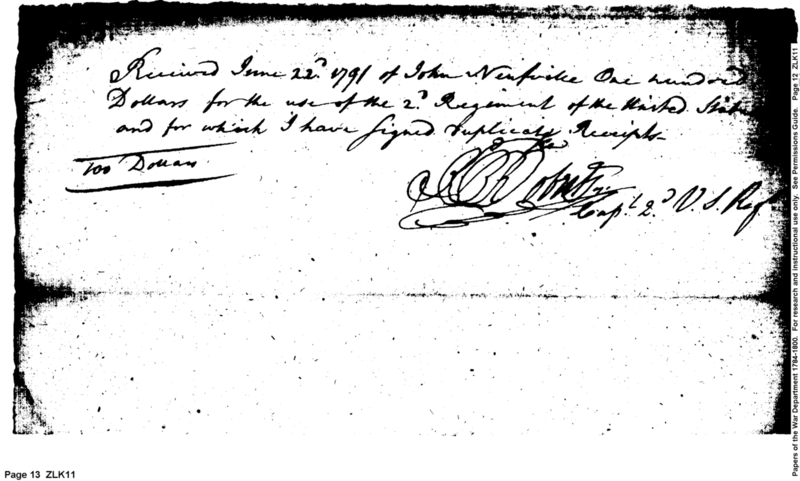 Received June 22d. 1791 of John Neufville One hundred
Dollars for the use of the 2d. Regiment of the United State
and for which I have signed duplicate Receipts
100 Dollars
Capt. 2d. U. S. Regt.
Page 13 ZLK11
Papers of the War Department 1784-1800. For research and instructional use only. See Permissions Guide. Page 12 ZLK11